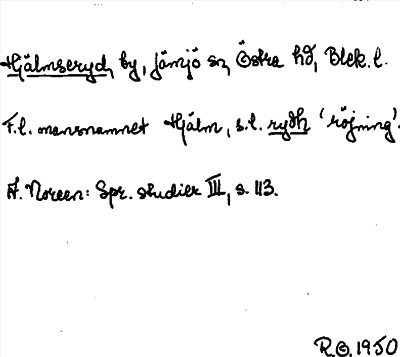 Hjälmseryd, by, Jämjö sn, Östra hd, Blek. l.
F.l. mansnamnet Hjälm, s.l. rydh 'röjning'.
A. Noreen: Spr. studier III, s. 113.
R.O. 1950